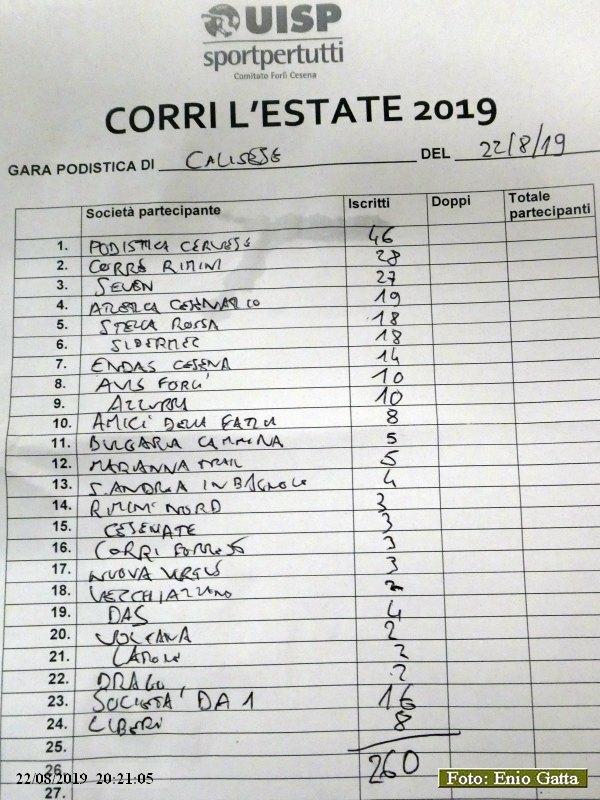 UISP
sportpertutti
Comitato Forlì Cesena
CORRI L'ESTATE 2019
GARA PODISTICA DI CALISESE DEL 22/8/19
Società partecipante Iscritti Doppi Totale partecipanti
1. PODISTICA CERVESE 46
2. CORRE RIMINI 28
3. SEVEN 27
4. CESENATICO 19
5. STELLA ROSSA 18
6. SIDERMEC 18
7. ENDAS CESENA 14
8. AVIS FORLI' 10
9. AZZURRA 10
10. AMICI DELLA FATICA 8
11. BULGARIA CAMMINA 5
12. MARIANNA TRAIL 5
13. S. ANDREA IN BAGNOLO 4
14. RIMINI NORD 3
15. CESENATE 3
16. CORRI FORRESE 3
17. NUOVA VIRTUS 3
18. VECCHIAZZANO
19. DAS 4
20. VOLTANA 2
21. 2
22. DRAGO 2
23. SOCIETA' DA 1 16
24. LIBERI 8
25.
26. 260
27.
22/08/2019 20:21:05
Foto: Enio Gatta